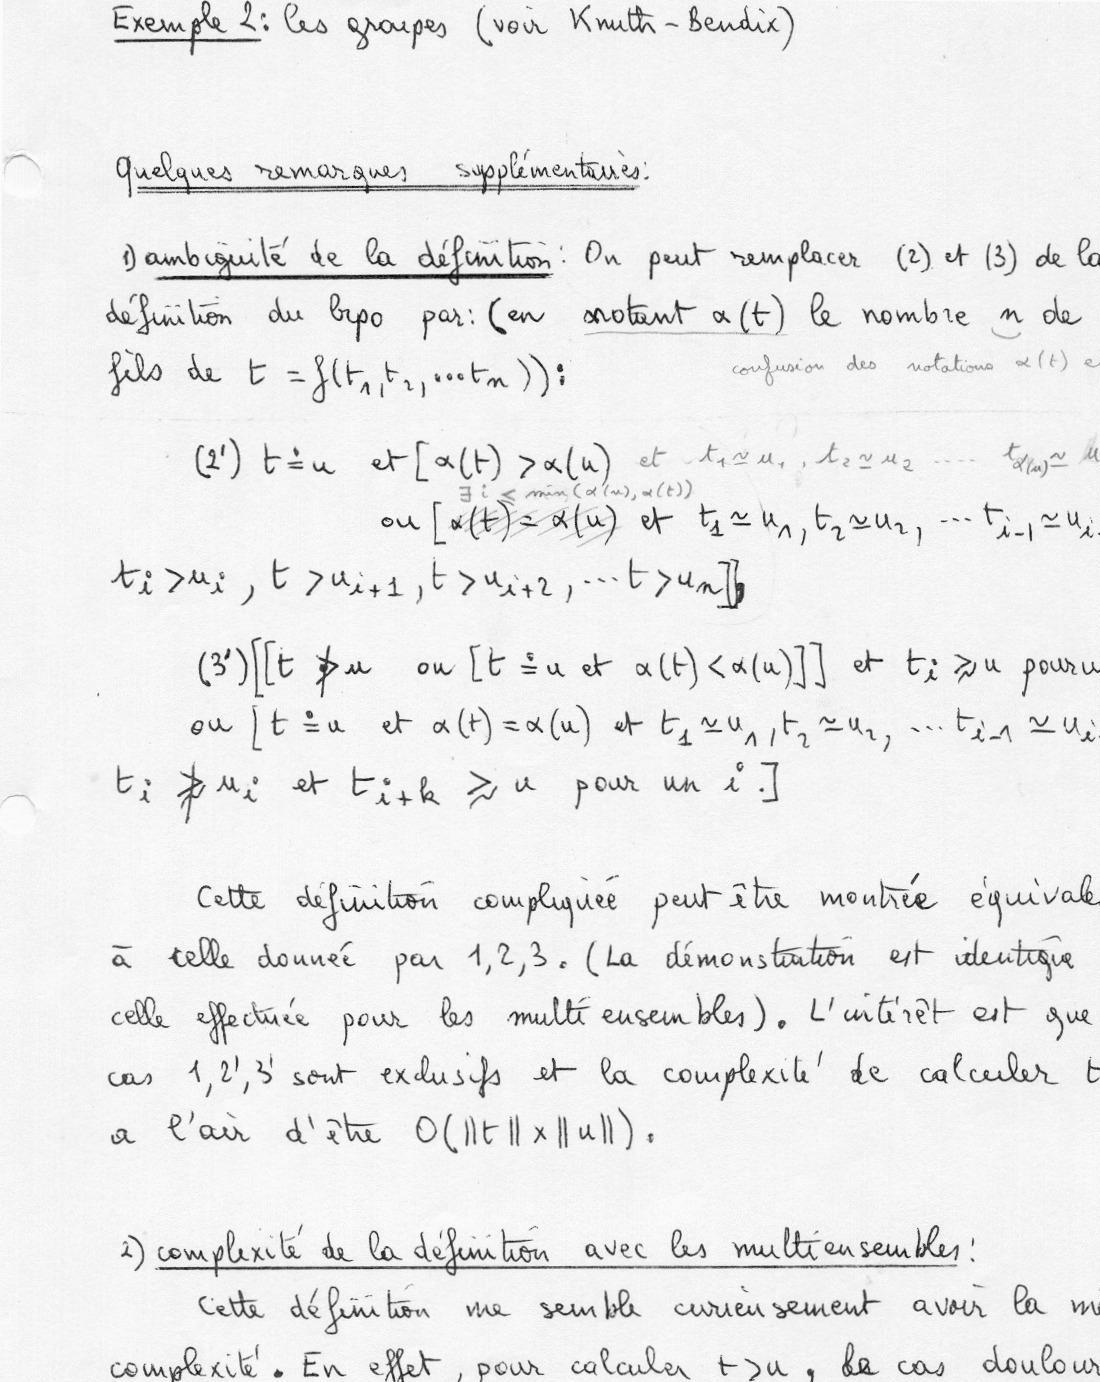 Exemple 2: les groupes (voir Knuth-Bendix)
Quelques remarques supplémentaires:
1) ambiguité de la définition: On peut remplacer (2) et (3) de la
définition du lrpo par: (en notant α(t) le nombre n de
fils de t = f(t₁,t₂,...tₙ)):
confusion des notations α(t) e
(2') t ≐ u et [α(t) > α(u) et t₁ ≃ u₁, t₂ ≃ u₂ .... t_α(u) ≃ u
∃ i ≤ min(α(u), α(t))
ou [α(t) = α(u) et t₁ ≃ u₁, t₂ ≃ u₂, ... tᵢ₋₁ ≃ uᵢ₋
tᵢ > uᵢ, t > uᵢ₊₁, t > uᵢ₊₂, ... t > uₙ]],
(3') [[t ≯ u ou [t ≐ u et α(t) < α(u)]] et tᵢ ⪎ u pour u
ou [t ≐ u et α(t) = α(u) et t₁ ≃ u₁, t₂ ≃ u₂, ... tᵢ₋₁ ≃ uᵢ
tᵢ ≯ uᵢ et tᵢ₊ₖ ⪎ u pour un i.]
Cette définition compliquée peut être montrée équivale
à celle donnée par 1,2,3. (La démonstration est identique
celle effectuée pour les multi ensembles). L'intérêt est que
cas 1,2',3' sont exclusifs et la complexité de calculer t
a l'air d'être O(‖t‖ x ‖u‖).
2) complexité de la définition avec les multiensembles:
Cette définition me semble curieusement avoir la mê
complexité. En effet, pour calculer t>u, le cas doulour